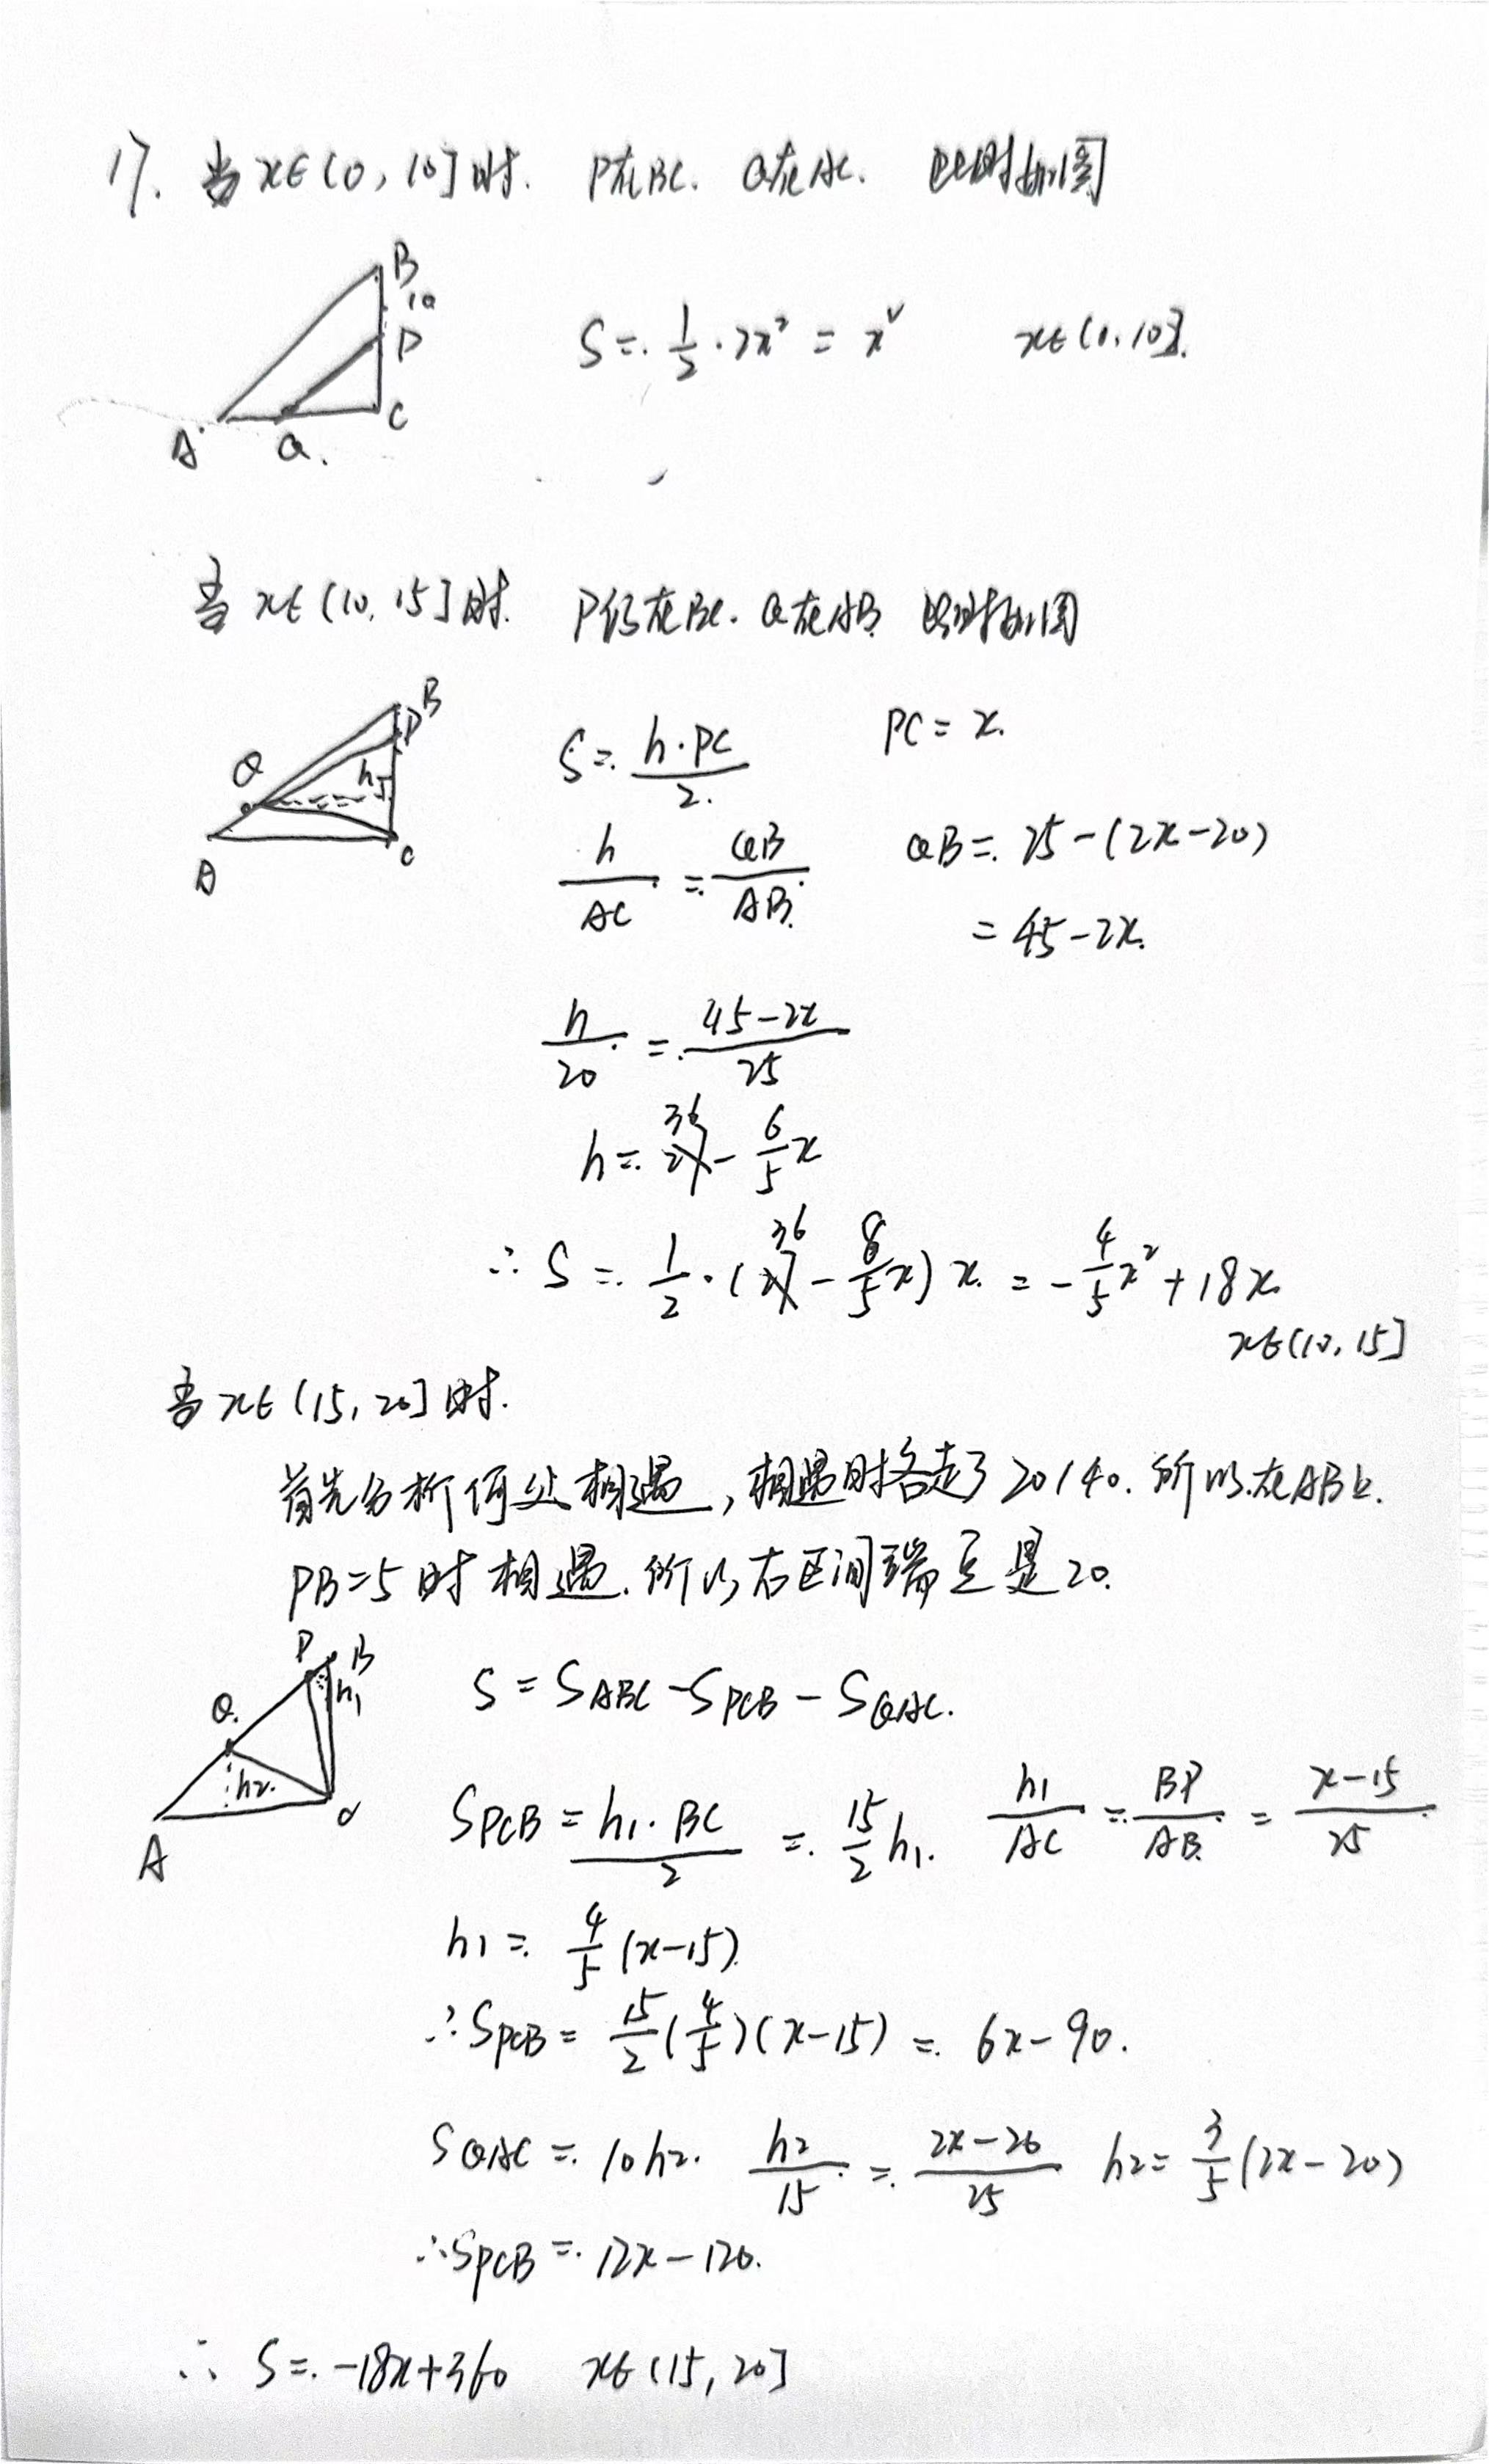 17. 当x∈(0,10]时. P在BC. Q在AC. 此时如图
B
10
P
C
A
Q.
S = 1/2 · 2x² = x² x∈(0,10].
当x∈(10,15]时. P仍在BC. Q在AB 此时如图
B
P
Q
h
A
C
S = h·PC/2. PC = x.
h/AC = QB/AB. QB = 25-(2x-20)
= 45-2x.
h/20 = 45-2x/25
h = 36 - 6/5 x
∴ S = 1/2 · (36 - 8/5 x) x. = -4/5 x² + 18x
x∈(10,15]
当x∈(15,20]时.
首先分析何处相遇, 相遇时各走了20/40. 所以在AB上.
PB=5时相遇. 所以右区间端点是20.
P B
h₁
Q.
h₂.
A
C
S = S_ABC - S_PCB - S_QAC.
S_PCB = h₁·BC/2 = 15/2 h₁. h₁/AC = BP/AB = x-15/25
h₁ = 4/5 (x-15)
∴ S_PCB = 15/2 (4/5)(x-15) = 6x-90.
S_QAC = 10h₂. h₂/15 = 2x-20/25 h₂ = 3/5 (2x-20)
∴ S_PCB = 12x-120.
∴ S = -18x+360 x∈(15,20]